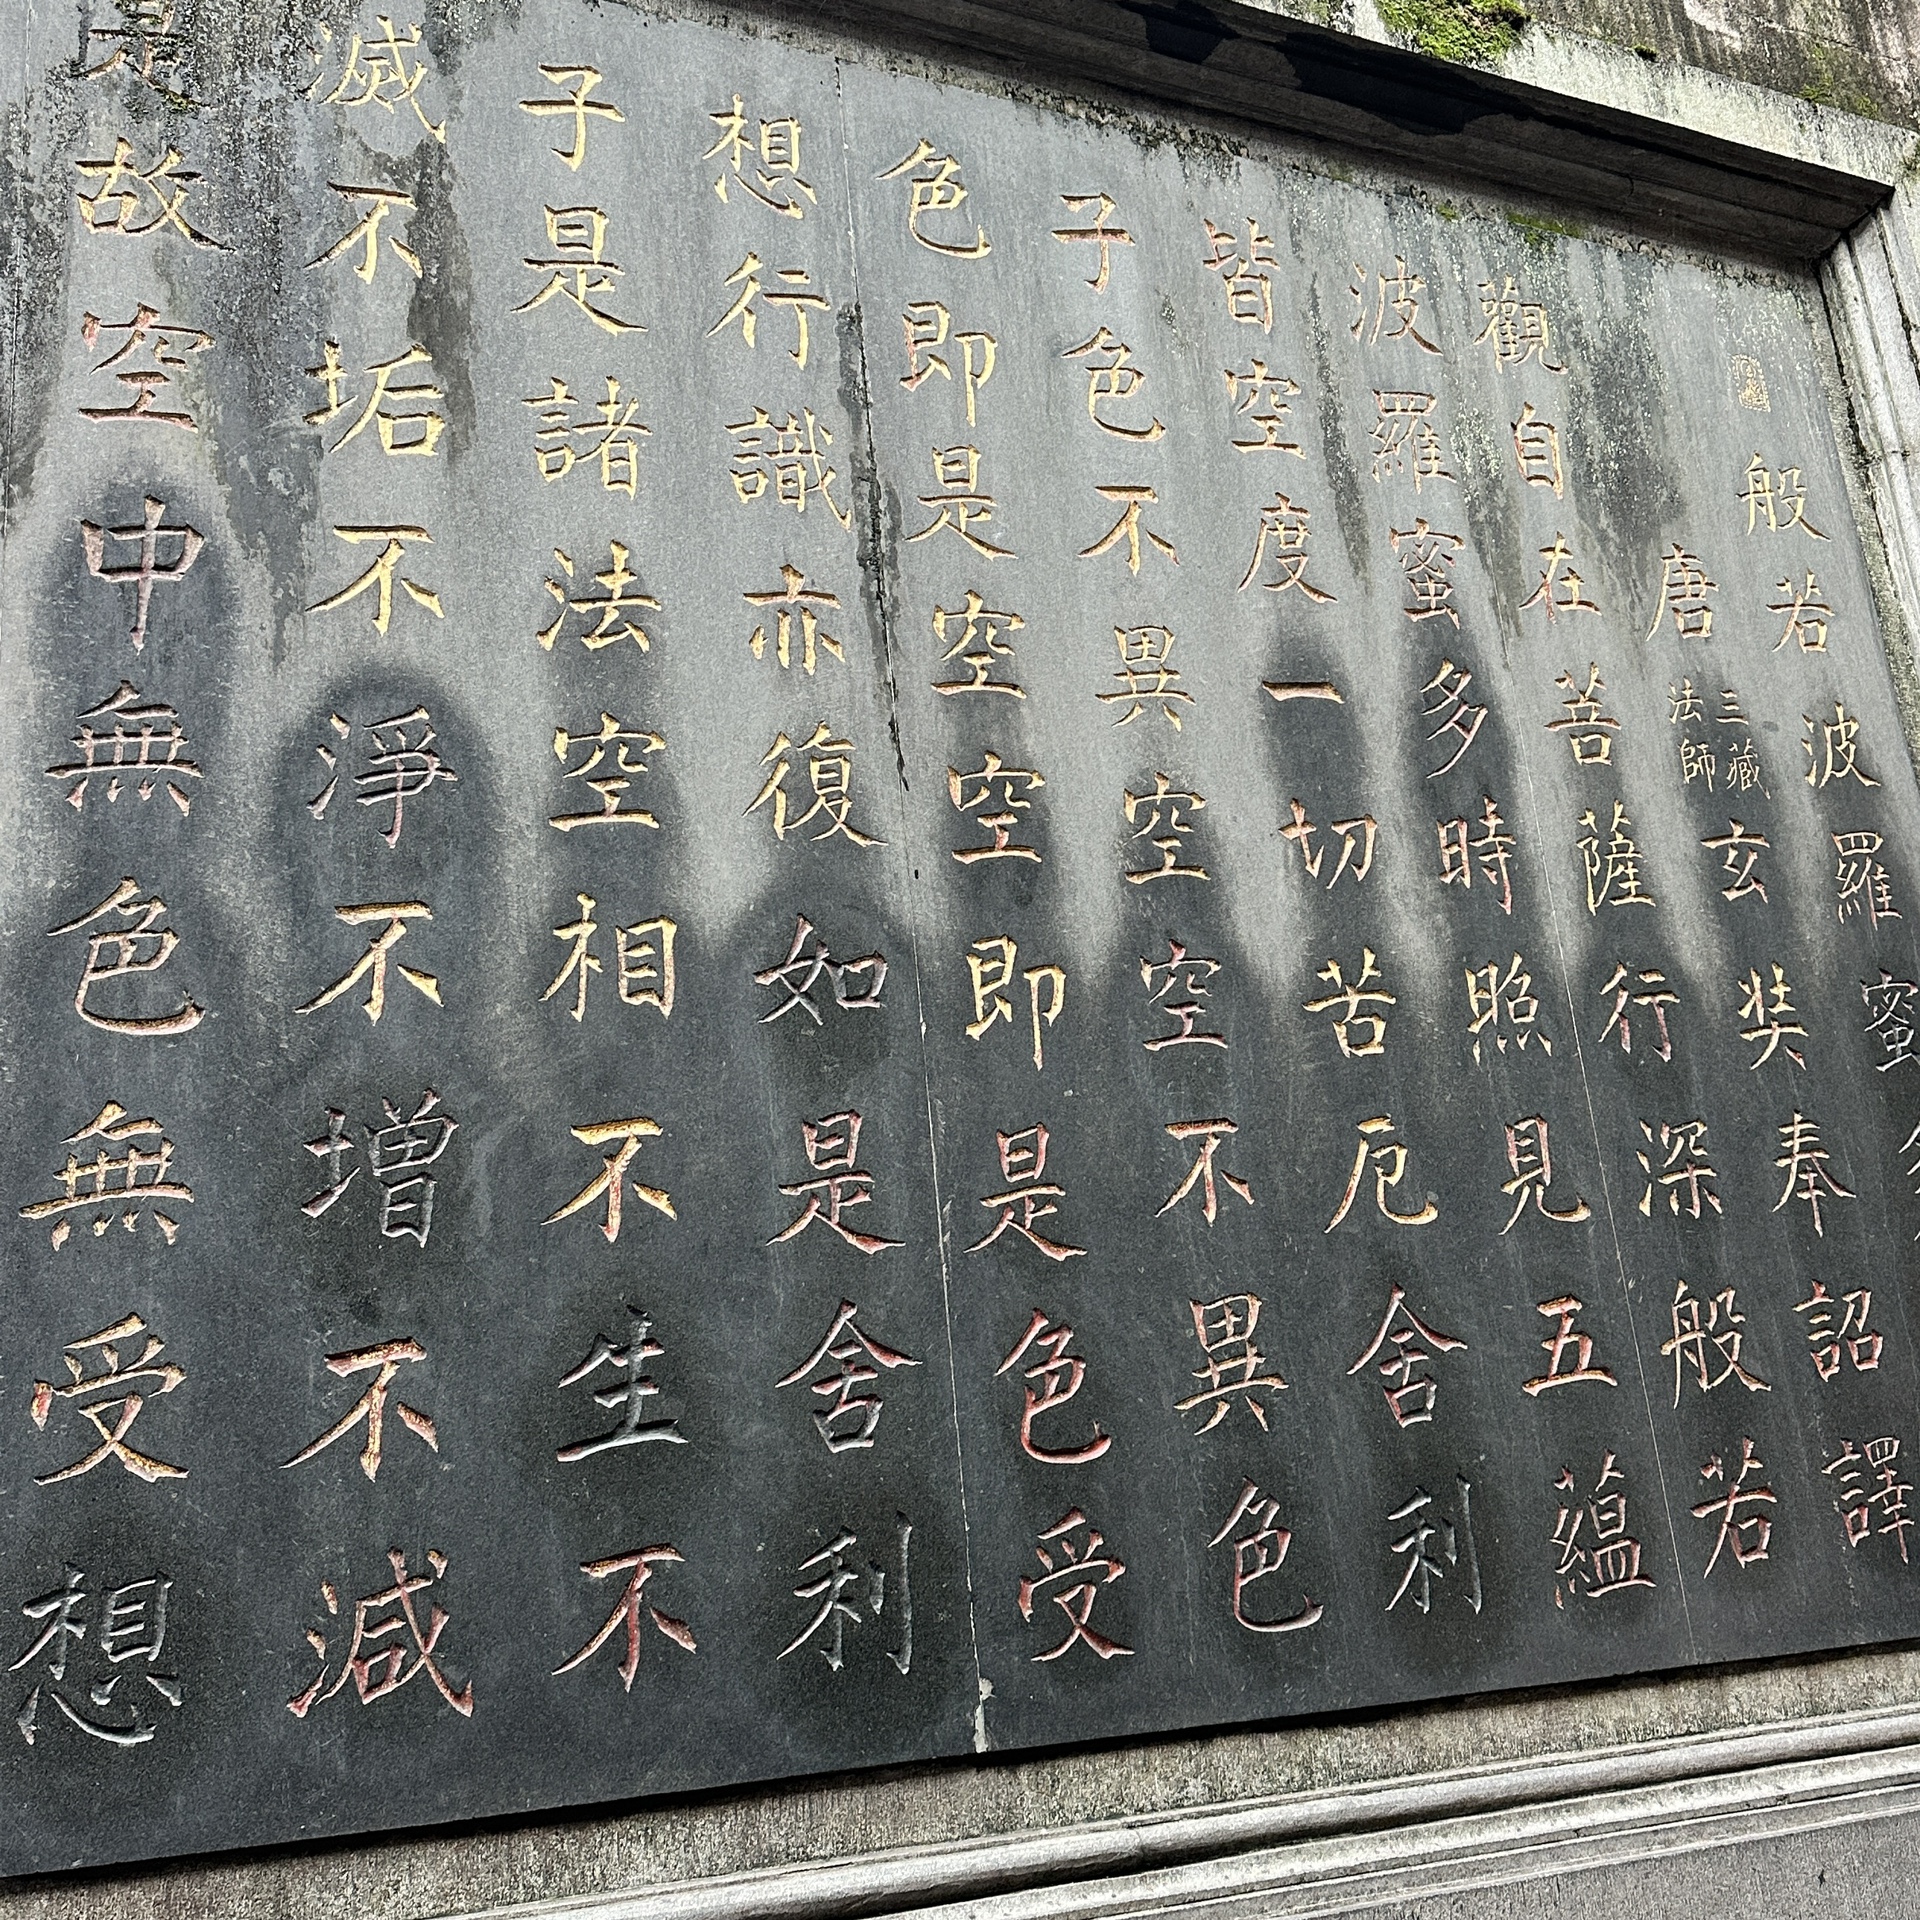 般若波羅蜜
唐三藏法師玄奘奉詔譯
觀自在菩薩行深般若
波羅蜜多時照見五蘊
皆空度一切苦厄舍利
子色不異空空不異色
色即是空空即是色受
想行識亦復如是舍利
子是諸法空相不生不
滅不垢不淨不增不減
是故空中無色無受想